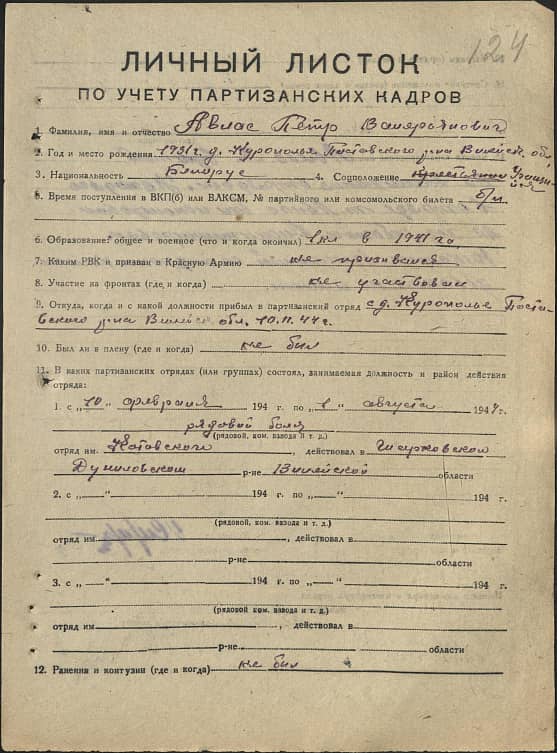 124
ЛИЧНЫЙ ЛИСТОК
ПО УЧЕТУ ПАРТИЗАНСКИХ КАДРОВ
1. Фамилия, имя и отчество Авлас Петр Валерьянович
2. Год и место рождения 1931 г. д. Курополья Поставского р-на Вилейск. обл.
3. Национальность Беларус 4. Соцположение
5. Время поступления в ВКП(б) или ВЛКСМ, № партийного или комсомольского билета б/п
6. Образование: общее и военное (что и когда окончил) 1 кл в 1941 го
7. Каким РВК и призван в Красную Армию не призывался
8. Участие на фронтах (где и когда) не участвовал
9. Откуда, когда и с какой должности прибыл в партизанский отряд с д. Курополье Поста-
вского р-на Вилейск. обл. 10.II.44 г.
10. Был ли в плену (где и когда) не был
11. В каких партизанских отрядах (или группах) состоял, занимаемая должность и район действия
отряда:
1. с „10" февраля 194 г. по „1" августа 1944 г.
рядовой боец
(рядовой, ком. взвода и т. д.)
отряд им. Котовского, действовал в
Дуниловском р-не Вилейской области
2. с „ " 194 г. по „ " 194 г.
(рядовой, ком. взвода и т. д.)
отряд им. , действовал в
р-не области
3. с „ " 194 г. по „ " 194 г.
(рядовой, ком. взвода и т. д.)
отряд им , действовал в
р-не. области
12. Ранения и контузии (где и когда) не был